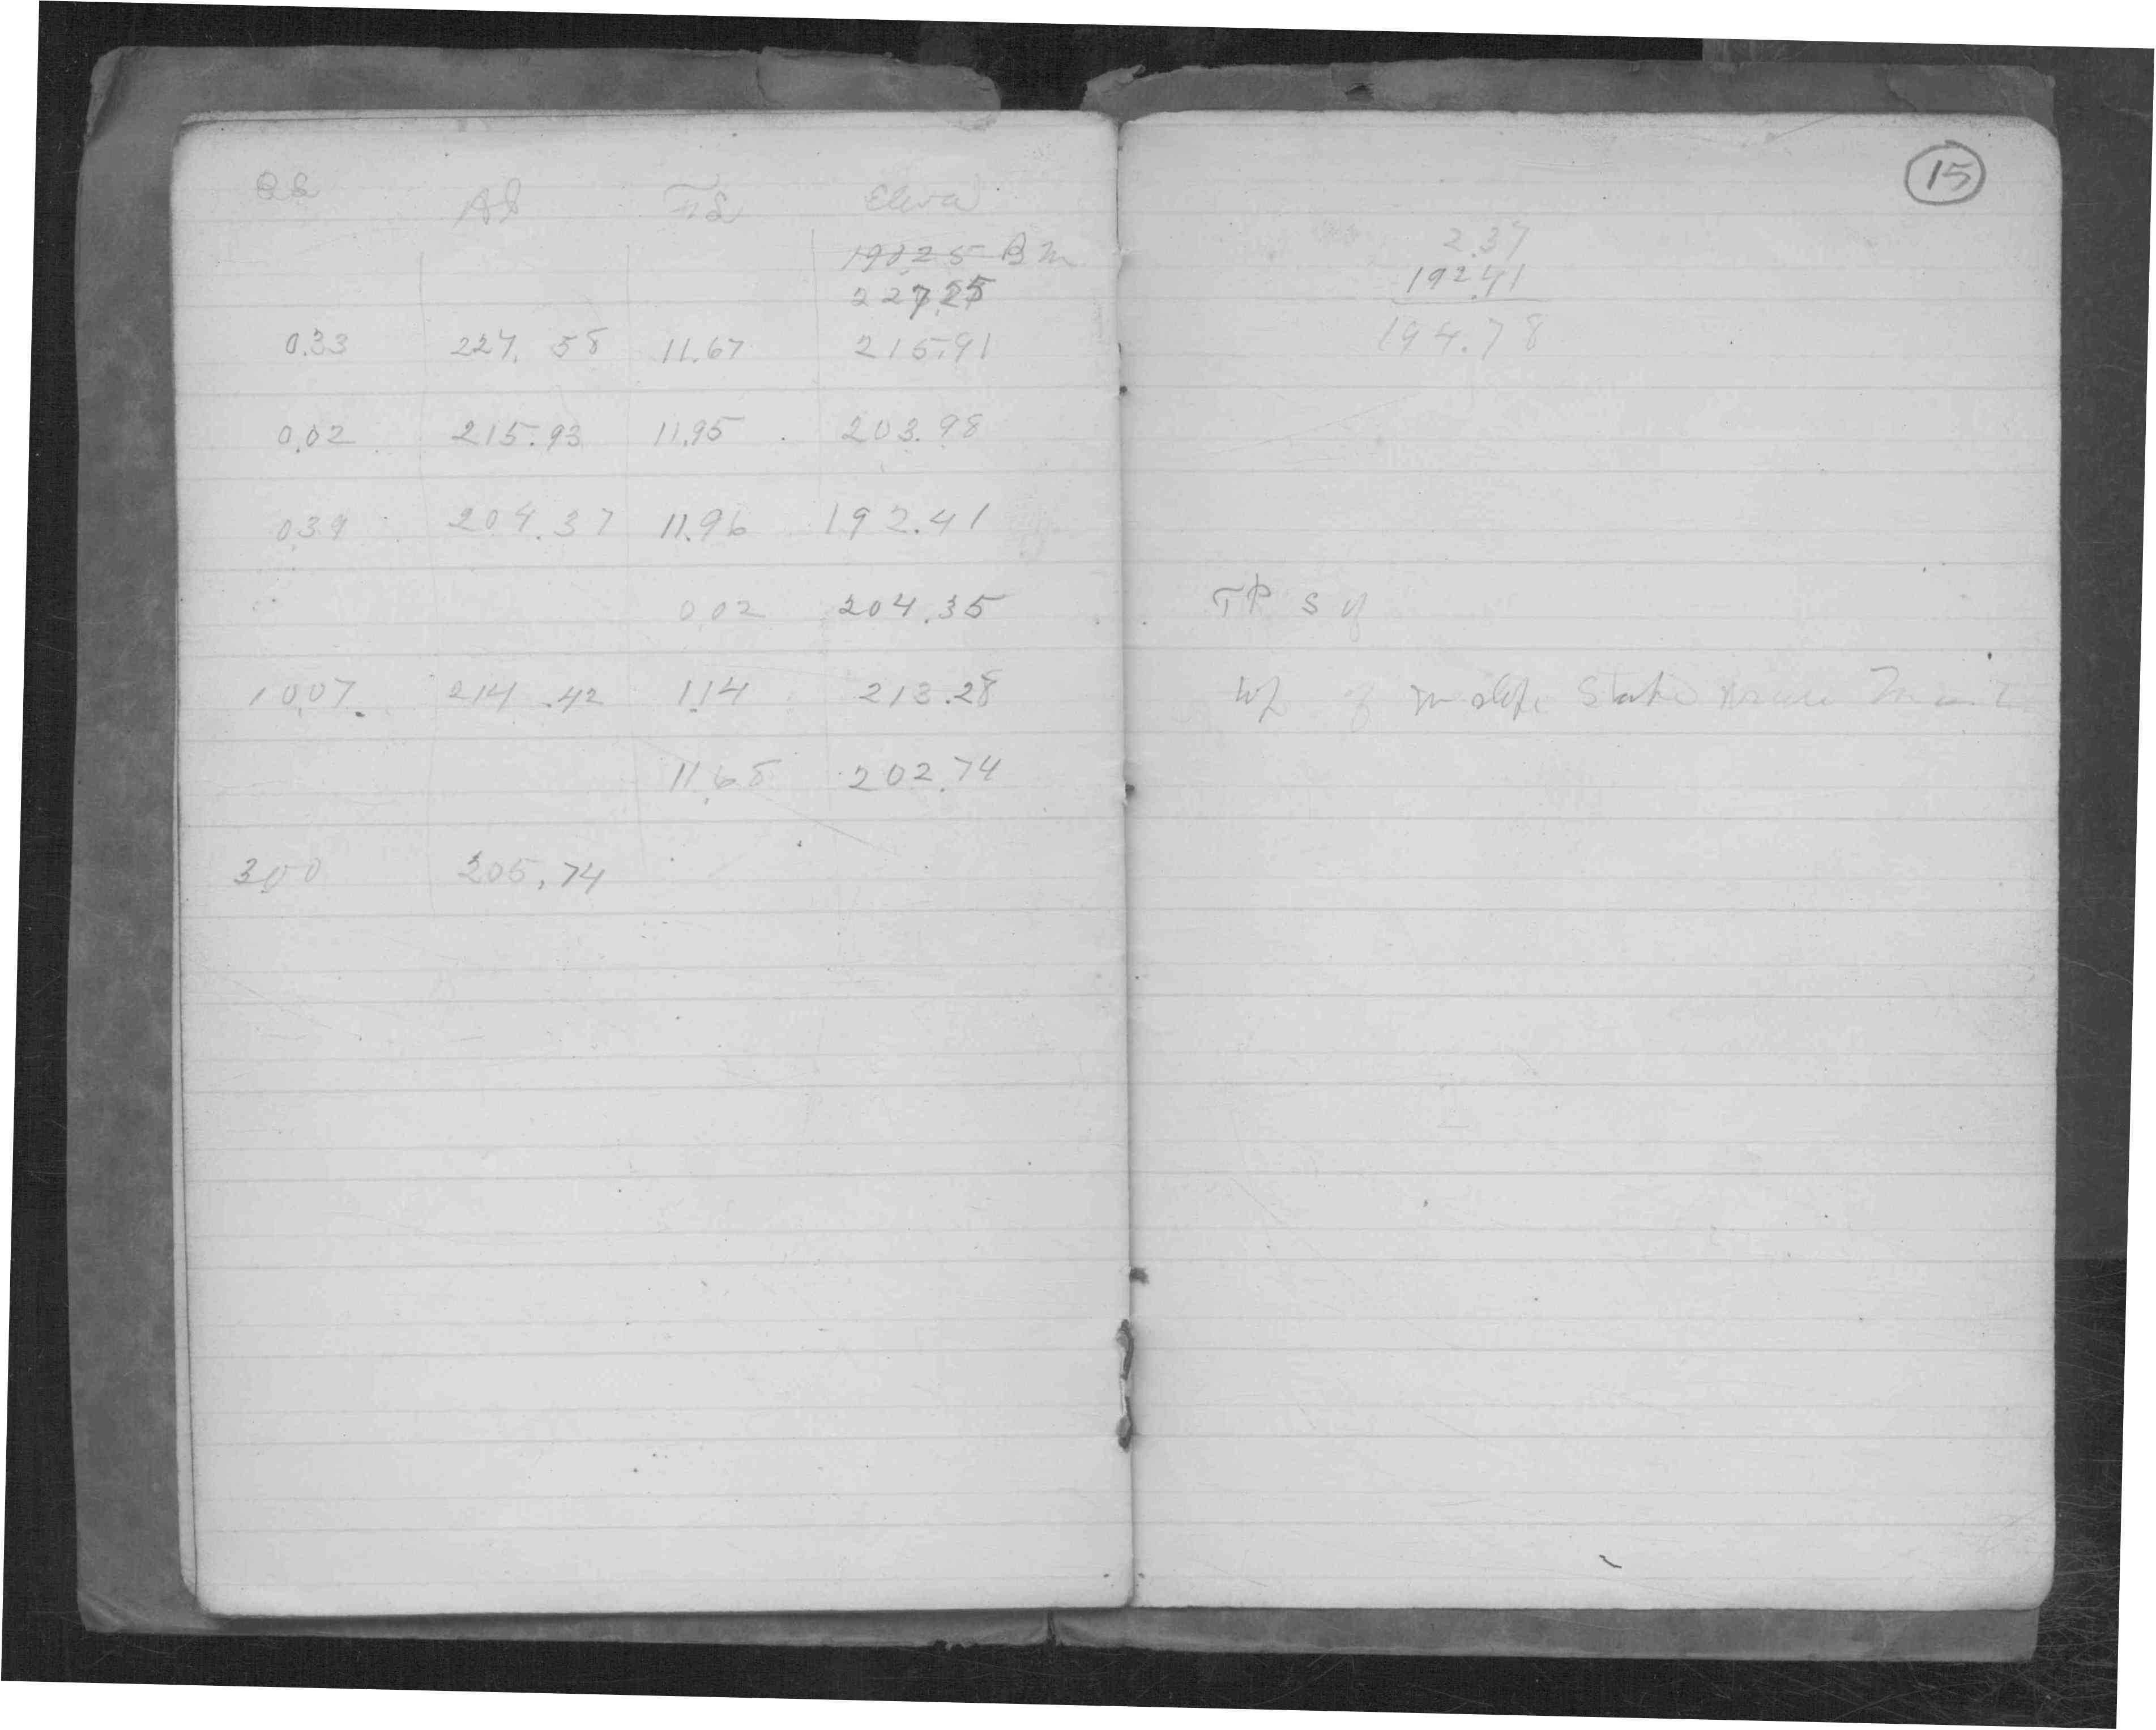 BS AS FS Eleva
190.25 BM
227.25
0.33 227.58 11.67 215.91
0.02 215.93 11.95 203.98
0.39 204.37 11.96 192.41
0.02 204.35
10.07 214.42 1.14 213.28
11.68 202.74
3.00 205.74
15
2.37
192.41
194.78
TP S of
of slope Stake